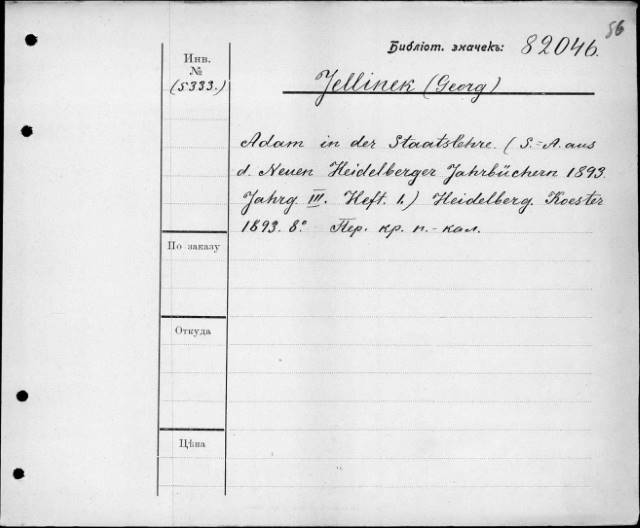 56
Библіот. значекъ: 82046.
Инв.
№
(5333.)
Jellinek (Georg)
Adam in der Staatslehre. (S.=A. aus
d. Neuen Heidelberger Jahrbüchern 1893.
Jahrg. III. Heft. 1.) Heidelberg. Koester
1893. 8º Пер. кр. п.-кал.
По заказу
Откуда
Цѣна